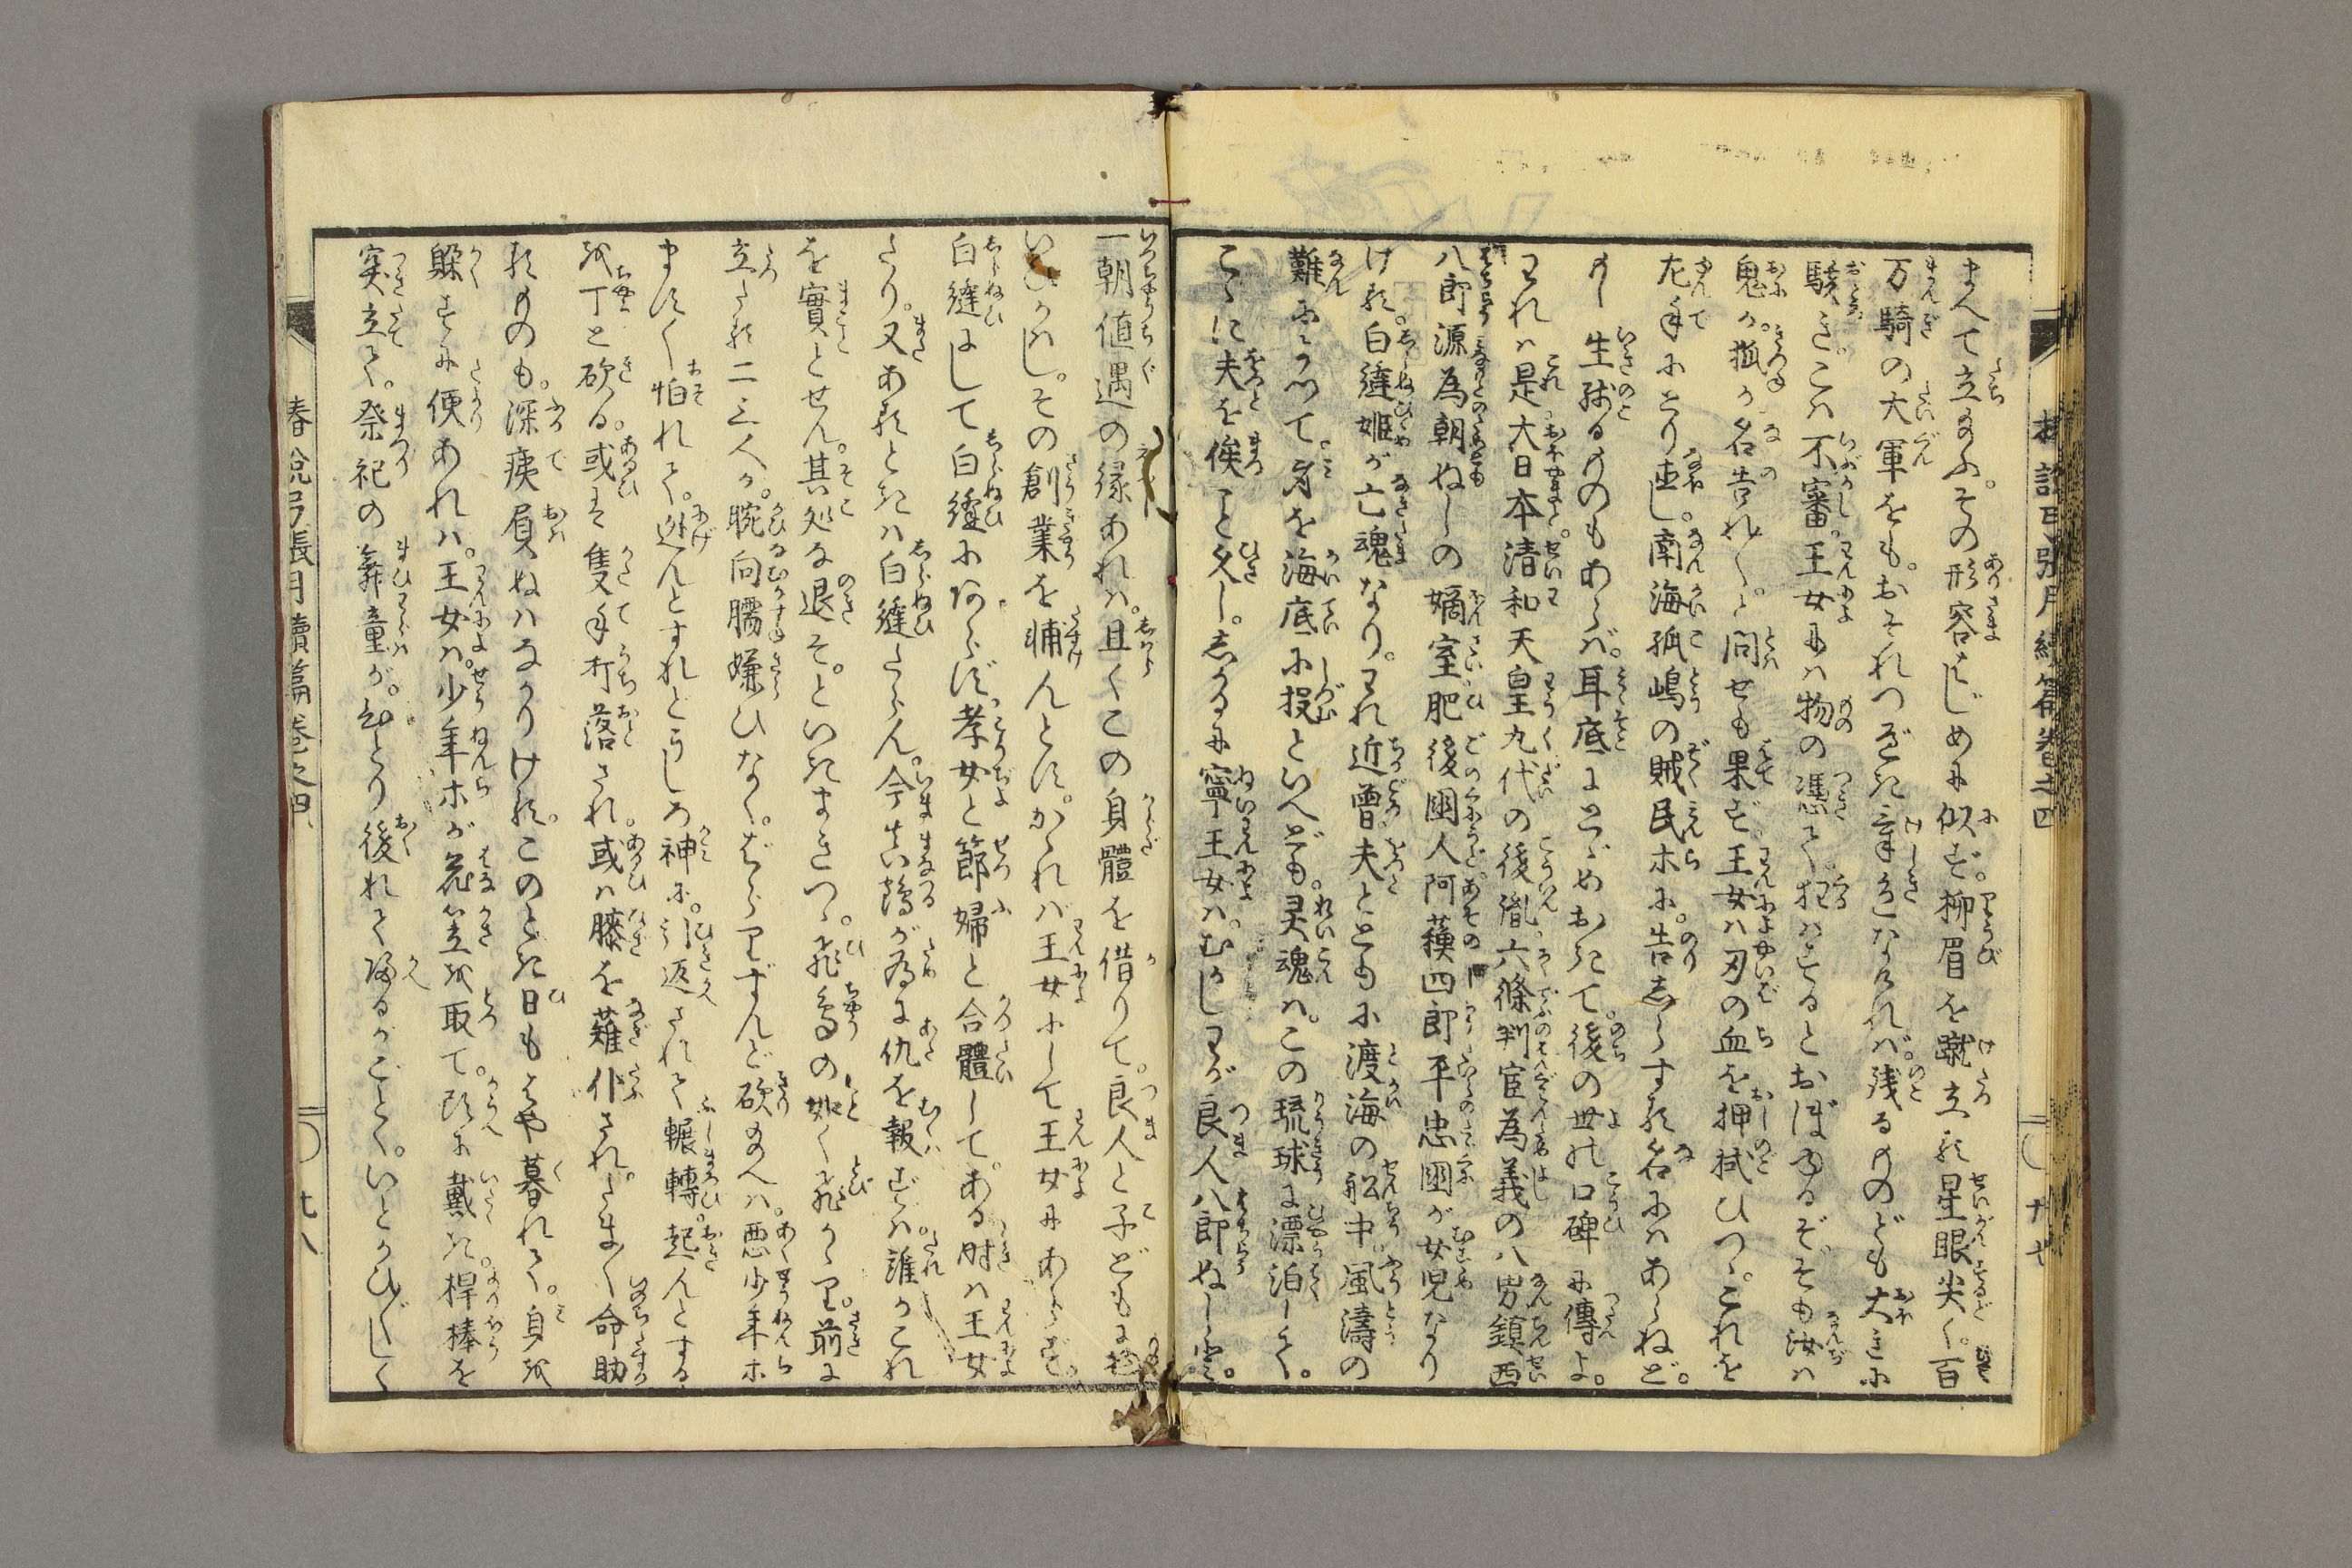 まへて立給ふ。その形容はじめに似ず。柳眉を蹴立る星眼尖く。百
万騎の大軍をも。おそれつべき氣色なれば。残るものども大きに
駭き。こハ不審。王女にハ物の憑て狂ハするとおぼゆるぞ。そも汝ハ
鬼か。狐か名告れ〳〵。と問せも果ず。王女ハ刃の血を押拭ひつゝ。これを
左手にとり直し。南海孤嶋の賊民ホに。告しらする名にハあらねど。
もし生残るものもあらバ。耳底にとゞめおきて。後の世の口碑に傳よ。
われハ是。大日本清和天皇九代の後胤。六條判官為義の八男鎮西
八郎源為朝ぬしの嫡室肥後國人阿蘓四郎平忠國が女児なり
ける。白縫姫が亡魂なり。われ近曾夫とともに渡海の舩中風濤の
難にかゝつて。身を海底に投といへども。灵魂ハ。この琉球に漂泊して。
こゝに夫を俟こと久し。しかるに寧王女ハ。むかしわが良人八郎ぬしに。
一朝値遇の縁あれハ。且くこの身體を借りて。良人と子どもに
いひかハし。その創業を輔んとす。かゝれバ王女にして王女にあらず。
白縫にして白縫にあらず。孝女と節婦と合體して。ある時ハ王女
たり。又あるときハ白縫たらん。今真鶴が為に仇を報ずハ。誰かこれ
を實とせん。其処な退そ。といきまきつゝ。飛鳥の如く飛かゝり。前に
立たる二三人が。腕向臑嫌ひなく。ばらりずんと砍給へハ。悪少年ホ
ますく怕れて。迯んとすれどうしろ神に。引返されて輾轉。起んとする
を丁と砍る。或ハ隻手打落され。或ハ膝を薙仆され。たま〳〵命助
るものも。深痍負ぬハなかりけり。このとき日もはや暮れて。身を
躱すに便あれハ。王女ハ。少年ホが花笠を取て。頭に戴き。桿棒を
突立て。祭祀の舞童が。ひとり後れて歸るがごとく。いとかひ〴〵しく
春説弓張月續篇巻之四